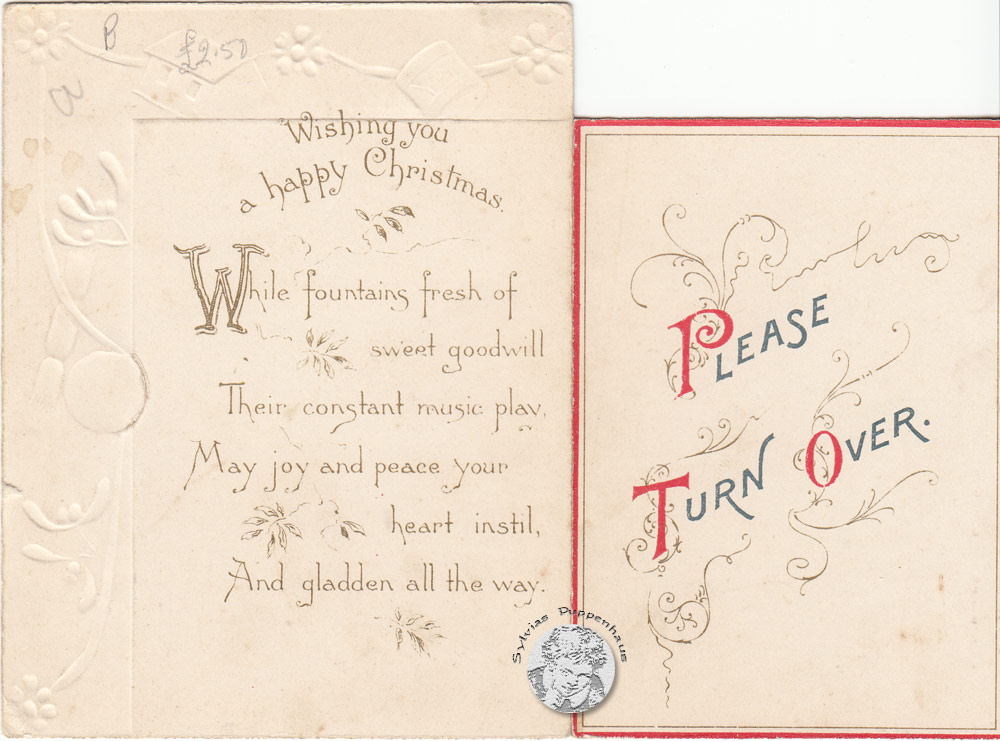 B
£2.50
a
Wishing you
a happy Christmas.
While fountains fresh of
sweet goodwill
Their constant music play,
May joy and peace your
heart instil,
And gladden all the way.
PLEASE
TURN OVER.
Sylvias Puppenhaus